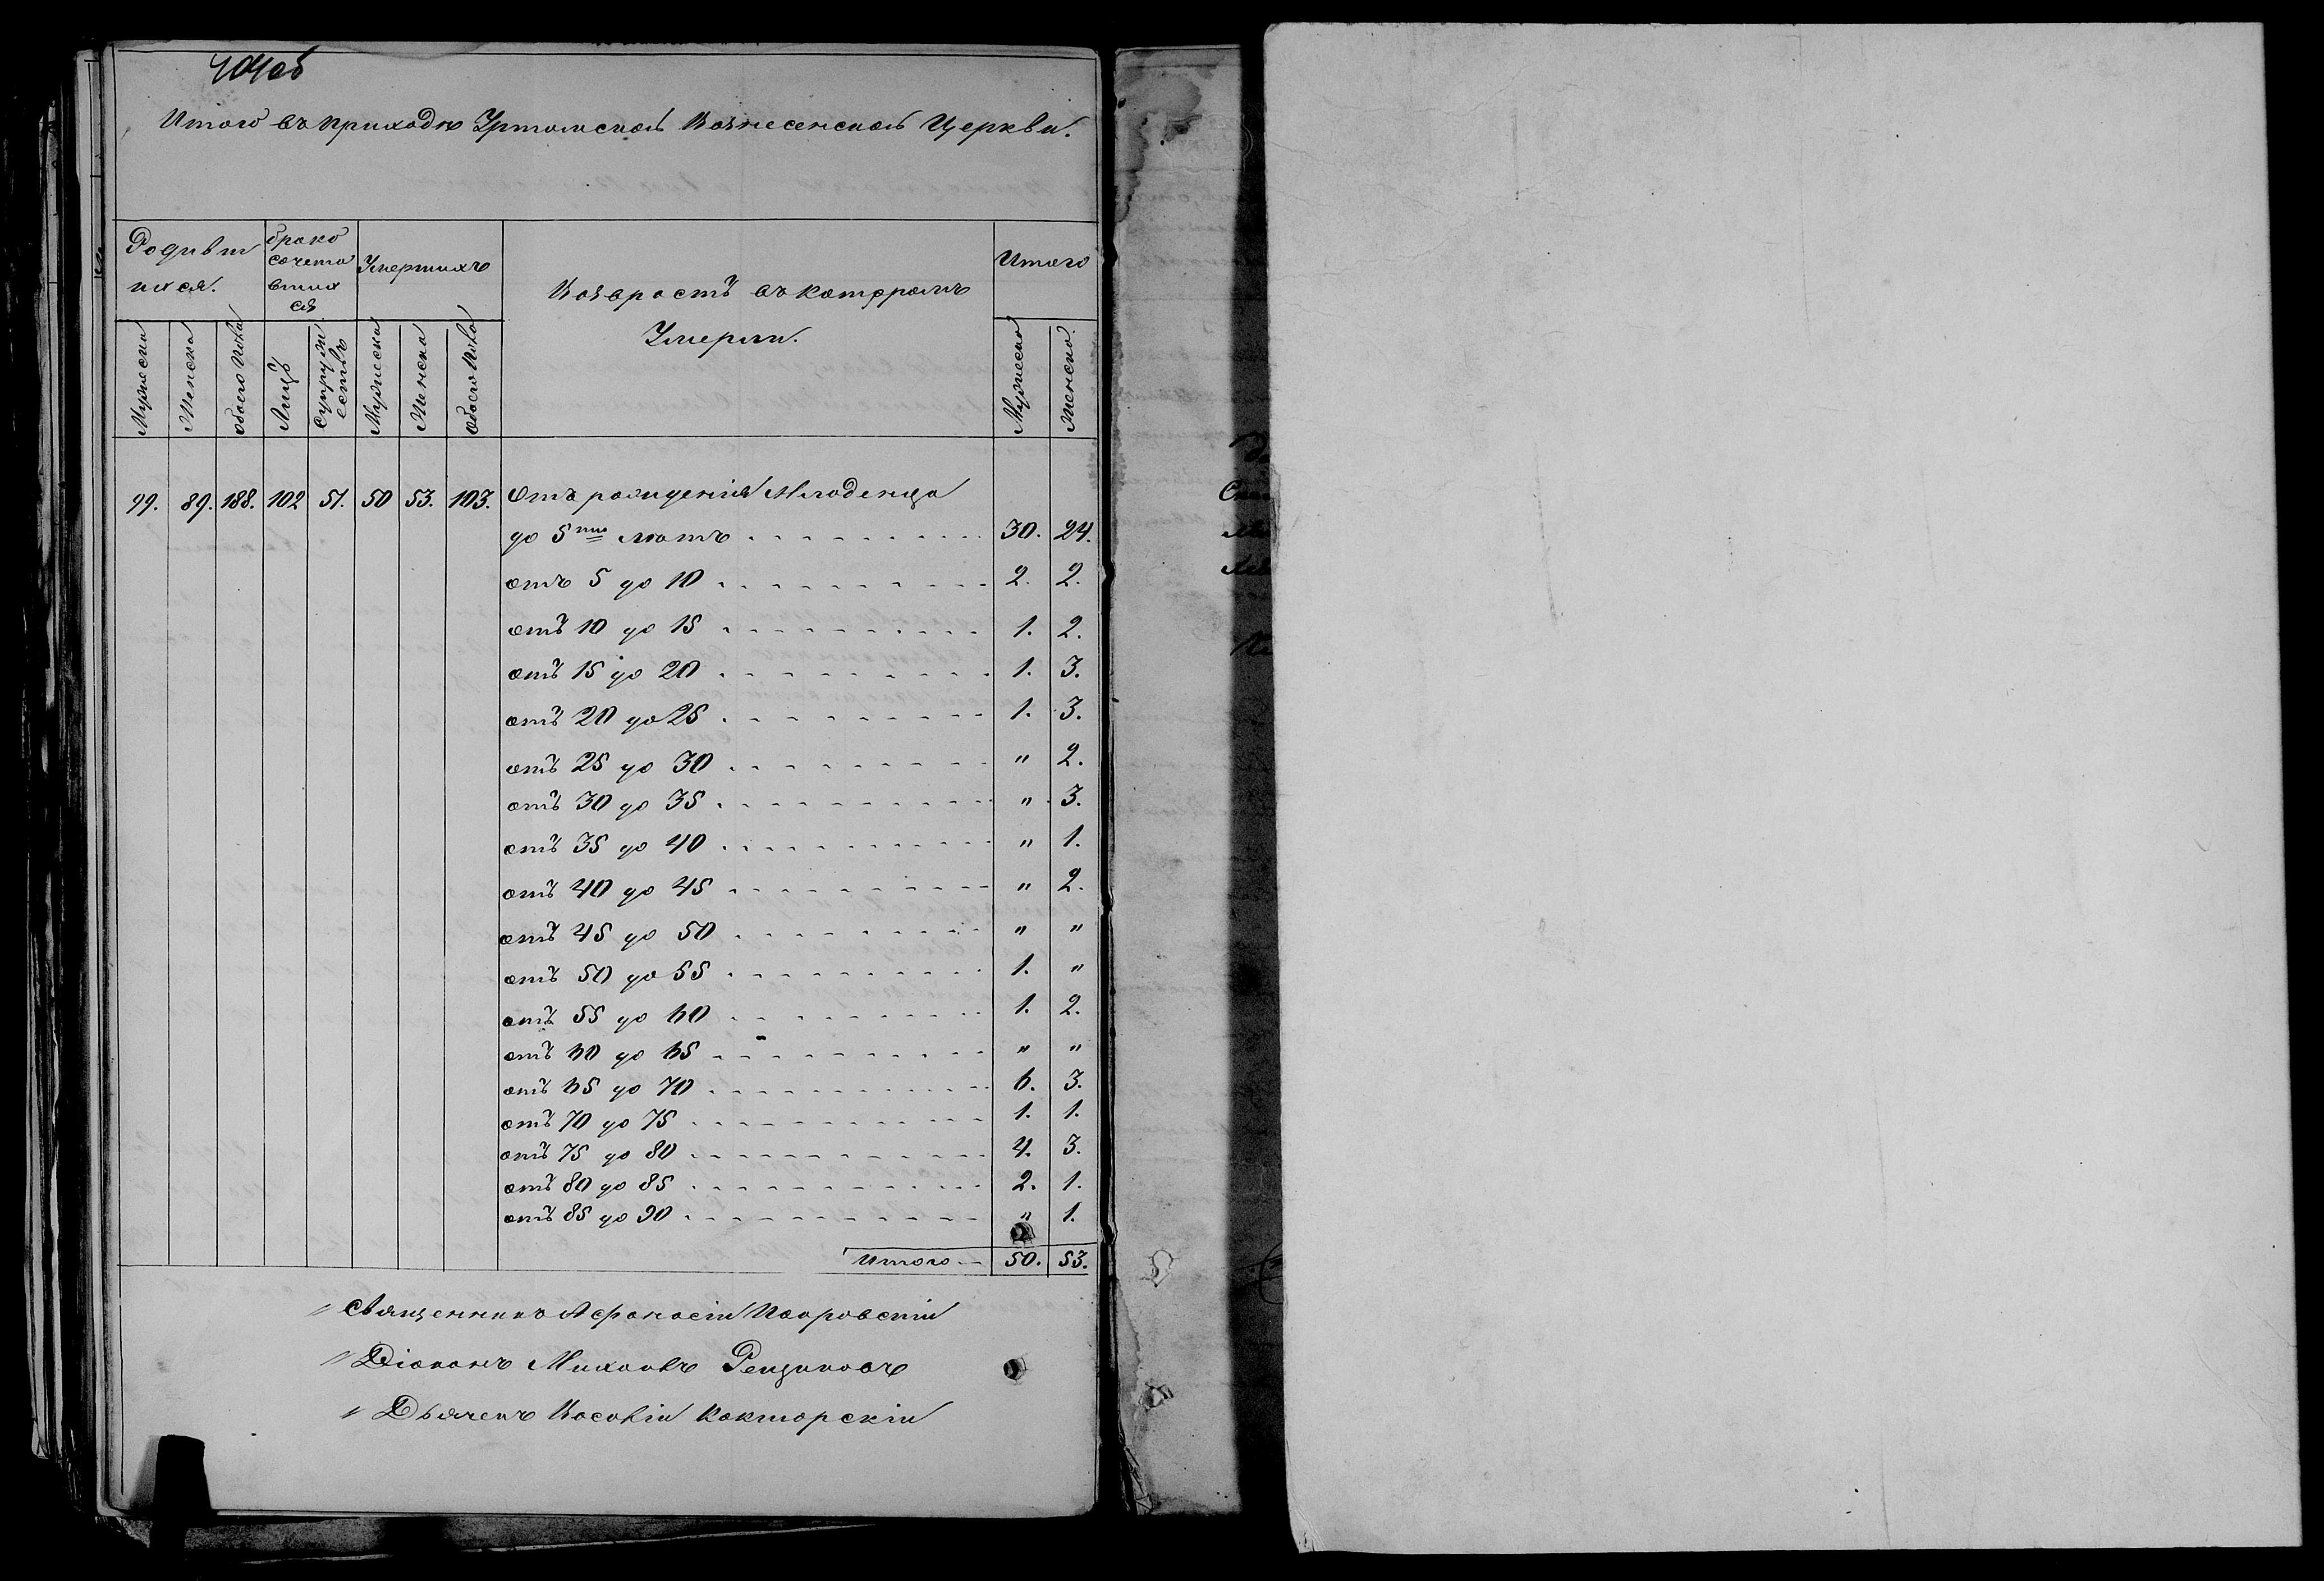 404об
Итого въ приходѣ Уртомской Вознесенской Церкви.
Родивш
ихся.
Брако
сочета
вших
ся
Умершихъ
Возрастъ въ которомъ
Умерли.
Итого
Мужеска
Женска
Обоего пола
Лицъ
Супруже
ствъ
Мужеска
Женска
Обоего пола
Мужеска
Женска
99. 89. 188. 102 51. 50 53. 103. Отъ рожденія Младенца
до 5ти лѣтъ 30. 24.
отъ 5 до 10 2. 2.
отъ 10 до 15 1. 2.
отъ 15 до 20 1. 3.
отъ 20 до 25 1. 3.
отъ 25 до 30 " 2.
отъ 30 до 35 " 3.
отъ 35 до 40 " 1.
отъ 40 до 45 " 2.
отъ 45 до 50 " "
отъ 50 до 55 1. "
отъ 55 до 60 1. 2.
отъ 60 до 65 " "
отъ 65 до 70 6. 3.
отъ 70 до 75 1. 1.
отъ 75 до 80 4. 3.
отъ 80 до 85 2. 1.
отъ 85 до 90 " 1.
Итого 50. 53.
Священникъ Афанасій Покровскій
Діаконъ Михаилъ
Дьячекъ